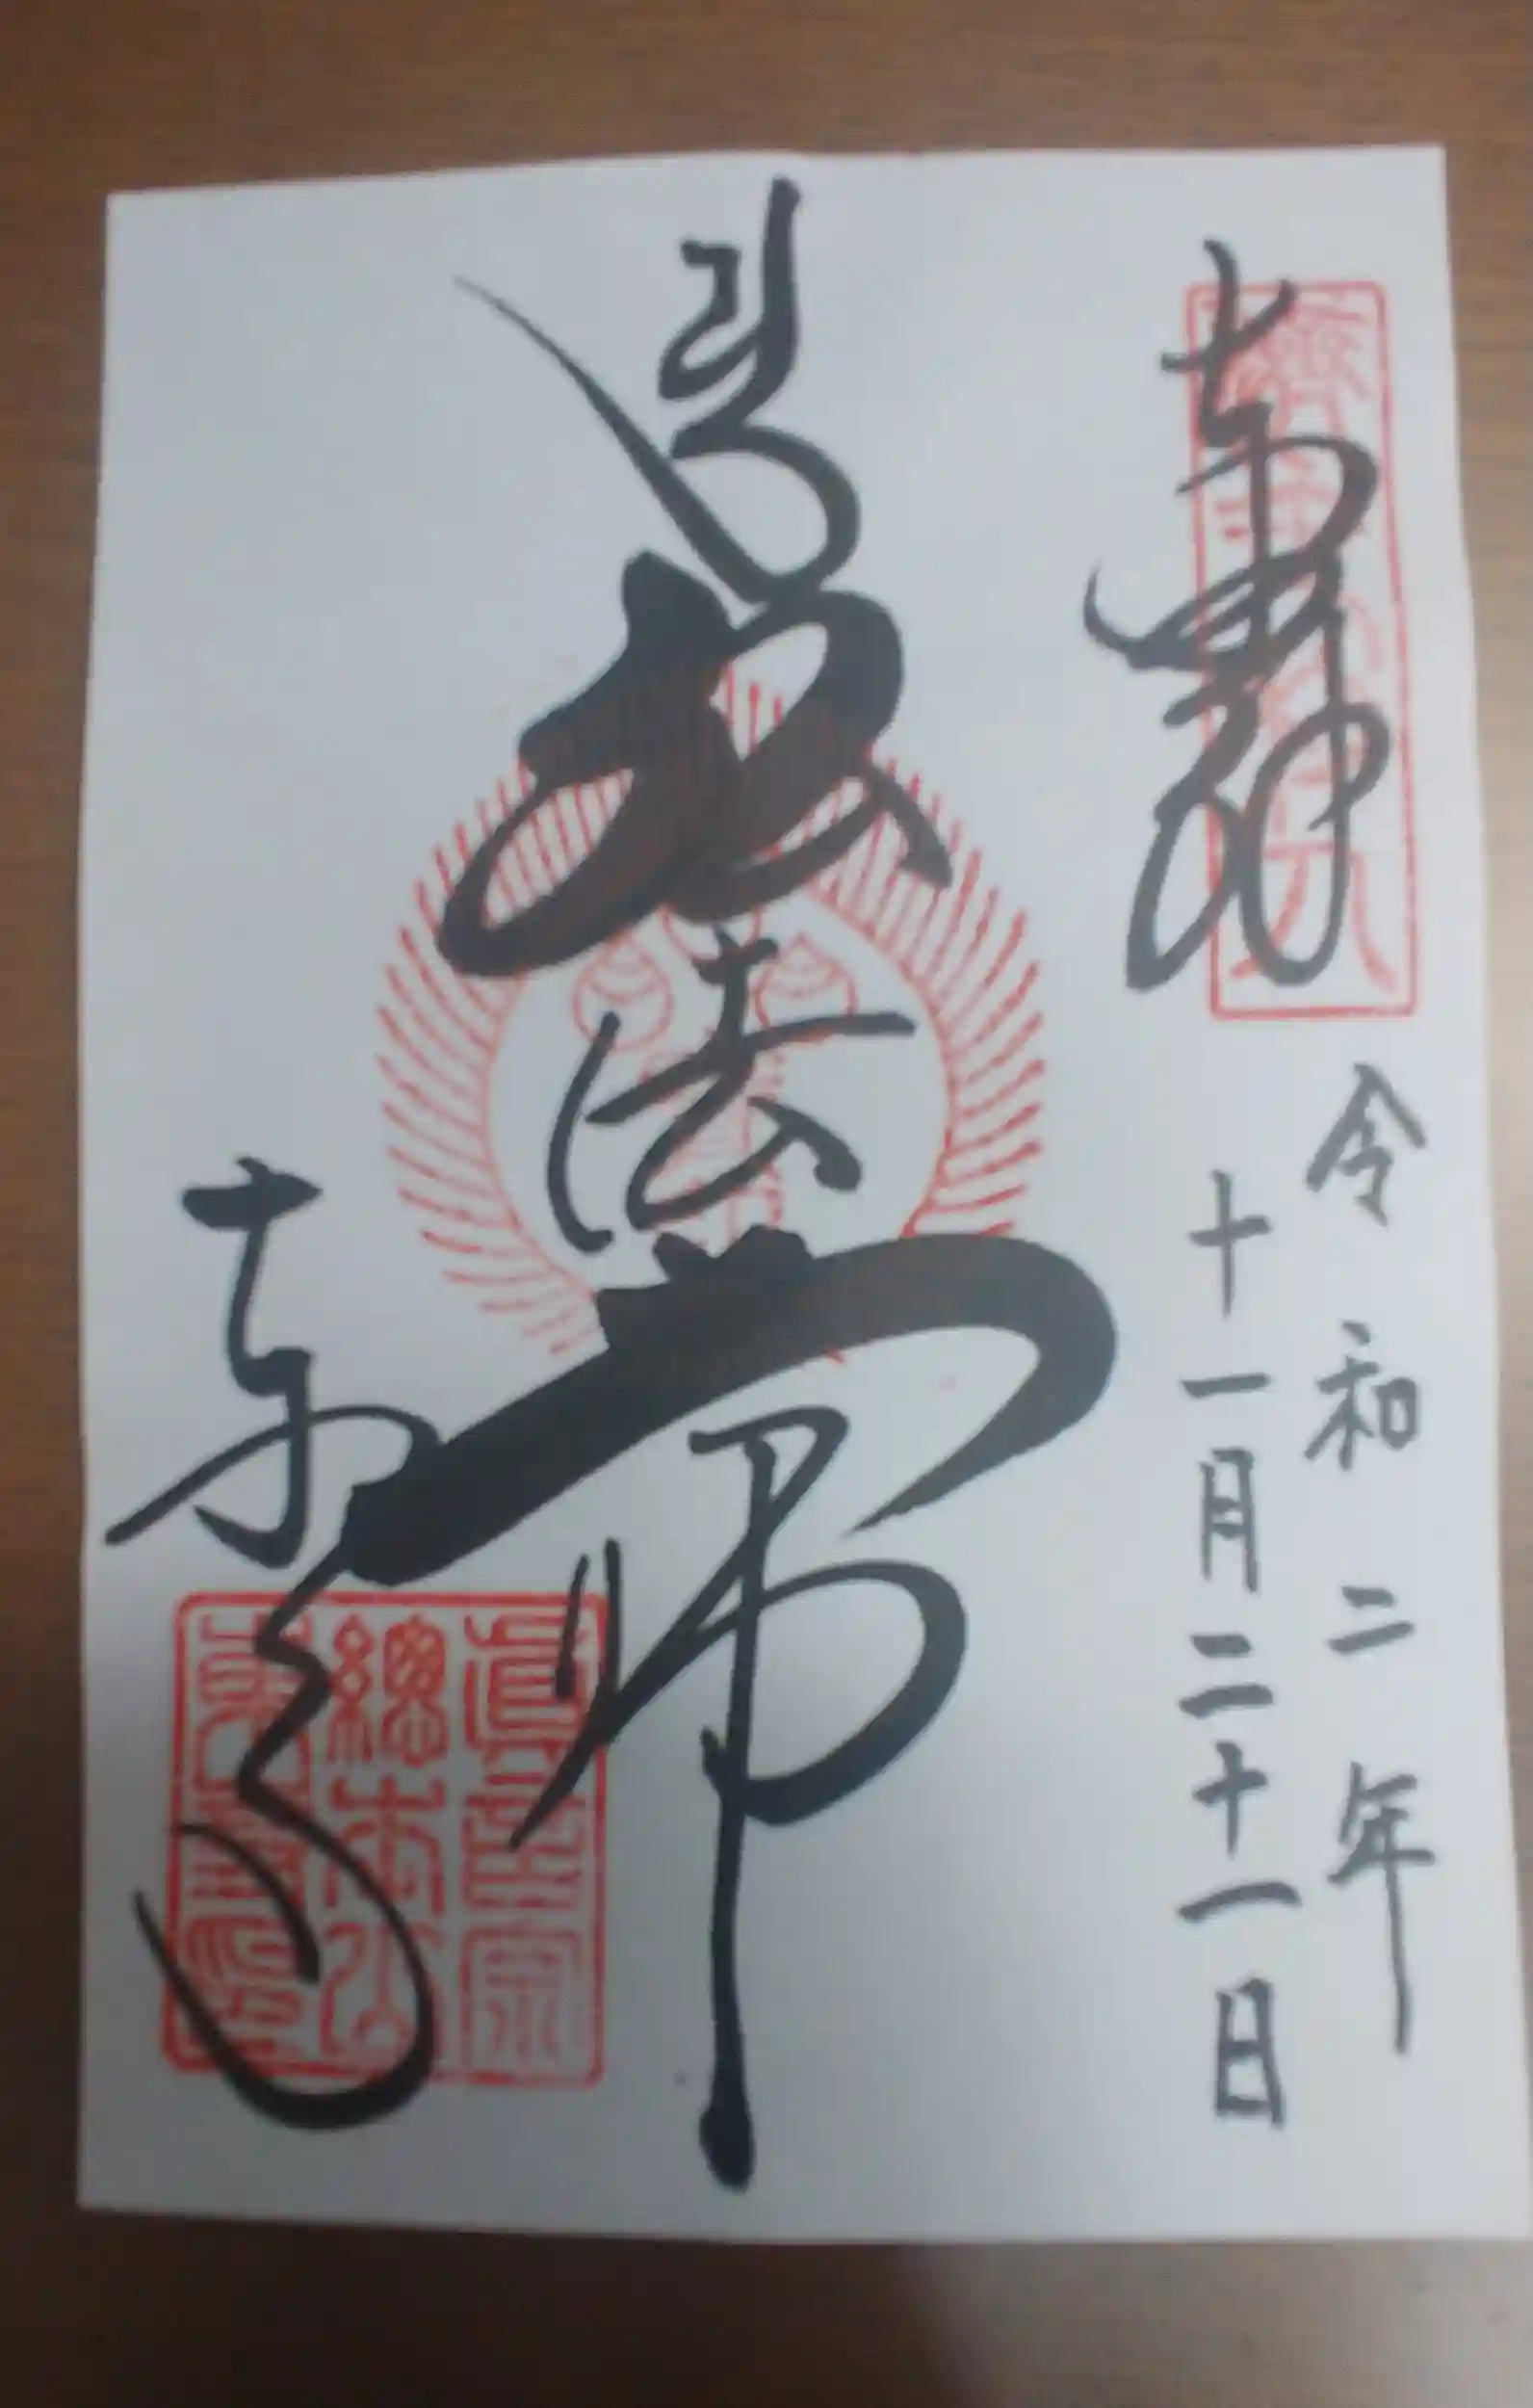 奉拝
令和二年
十一月二十一日
弘法大師
東寺
眞言宗
總本山